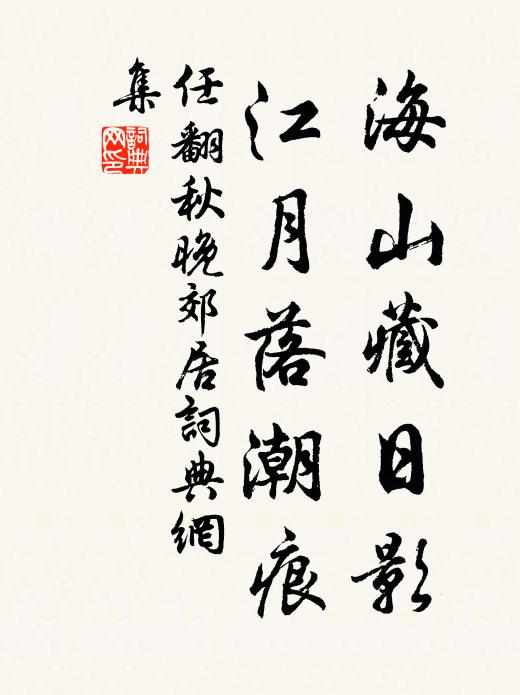 海山藏日影
江月落潮痕
任翻秋晚郊居詞典網
集
詞典
网印